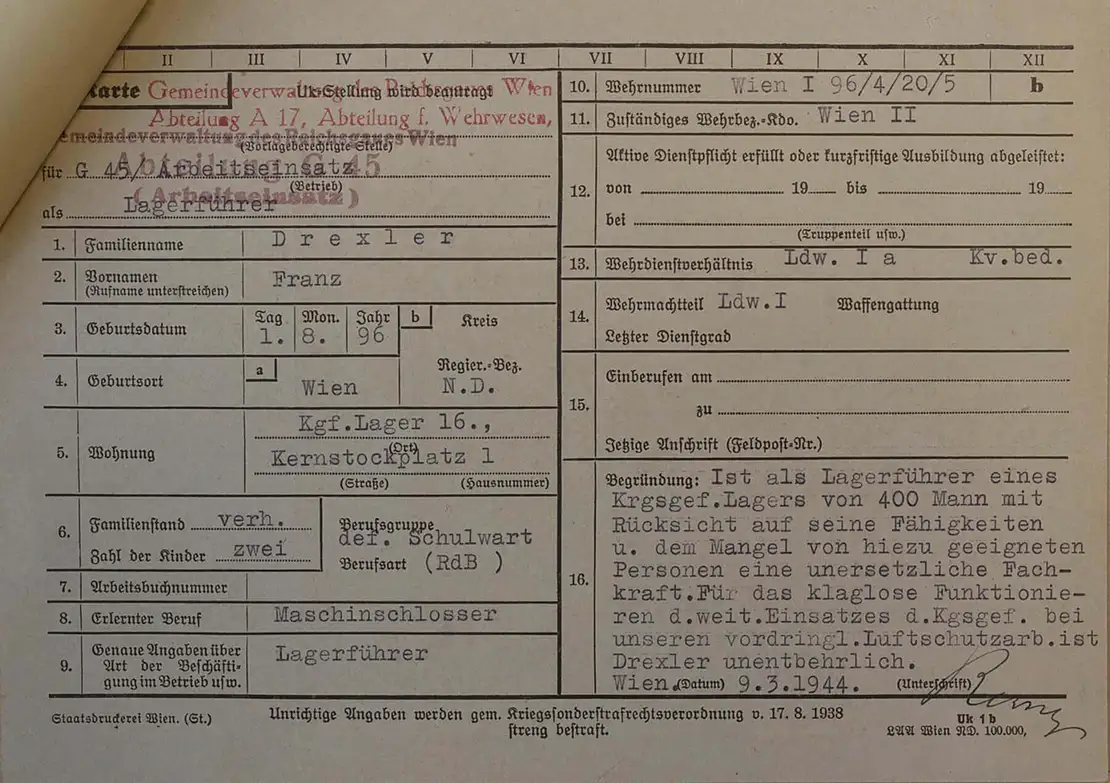 II III IV V VI VII VIII IX X XI XII
Karte Uk-Stellung wird beantragt
Gemeindeverwaltung des Reichsgaues Wien
Abteilung A 17, Abteilung f. Wehrwesen,
Gemeindeverwaltung des Reichsgaues Wien
(Vorlageberechtigte Stelle)
Abteilung G 45
für G 45/ Arbeitseinsatz
(Betrieb)
(Arbeitseinsatz)
als Lagerführer
1. Familienname Drexler
2. Vornamen Franz
(Rufname unterstreichen)
3. Geburtsdatum Tag Mon. Jahr b Kreis
1. 8. 96
4. Geburtsort a Wien Regier.-Bez.
N.D.
5. Wohnung Kgf.Lager 16.,
(Ort)
Kernstockplatz 1
(Straße) (Hausnummer)
6. Familienstand verh. Berufsgruppe
def. Schulwart
Zahl der Kinder zwei Berufsart (RdB )
7. Arbeitsbuchnummer
8. Erlernter Beruf Maschinschlosser
9. Genaue Angaben über
Art der Beschäfti-
gung im Betrieb usw.
Lagerführer
10. Wehrnummer Wien I 96/4/20/5 b
11. Zuständiges Wehrbez.-Kdo. Wien II
12. Aktive Dienstpflicht erfüllt oder kurzfristige Ausbildung abgeleistet:
von 19 bis 19
bei
(Truppenteil usw.)
13. Wehrdienstverhältnis Ldw. I a Kv.bed.
14. Wehrmachtteil Ldw.I Waffengattung
Letzter Dienstgrad
15. Einberufen am
zu
Jetzige Anschrift (Feldpost-Nr.)
16. Begründung: Ist als Lagerführer eines
Krgsgef.Lagers von 400 Mann mit
Rücksicht auf seine Fähigkeiten
u. dem Mangel von hiezu geeigneten
Personen eine unersetzliche Fach-
kraft.Für das klaglose Funktionie-
ren d.weit.Einsatzes d.Kgsgef. bei
unseren vordringl.Luftschutzarb.ist
Drexler unentbehrlich.
Wien, (Datum) 9.3.1944. (Unterschrift)
Staatsdruckerei Wien. (St.)
Unrichtige Angaben werden gem. Kriegssonderstrafrechtsverordnung v. 17. 8. 1938
streng bestraft.
Uk 1 b
LAA Wien ND. 100.000,